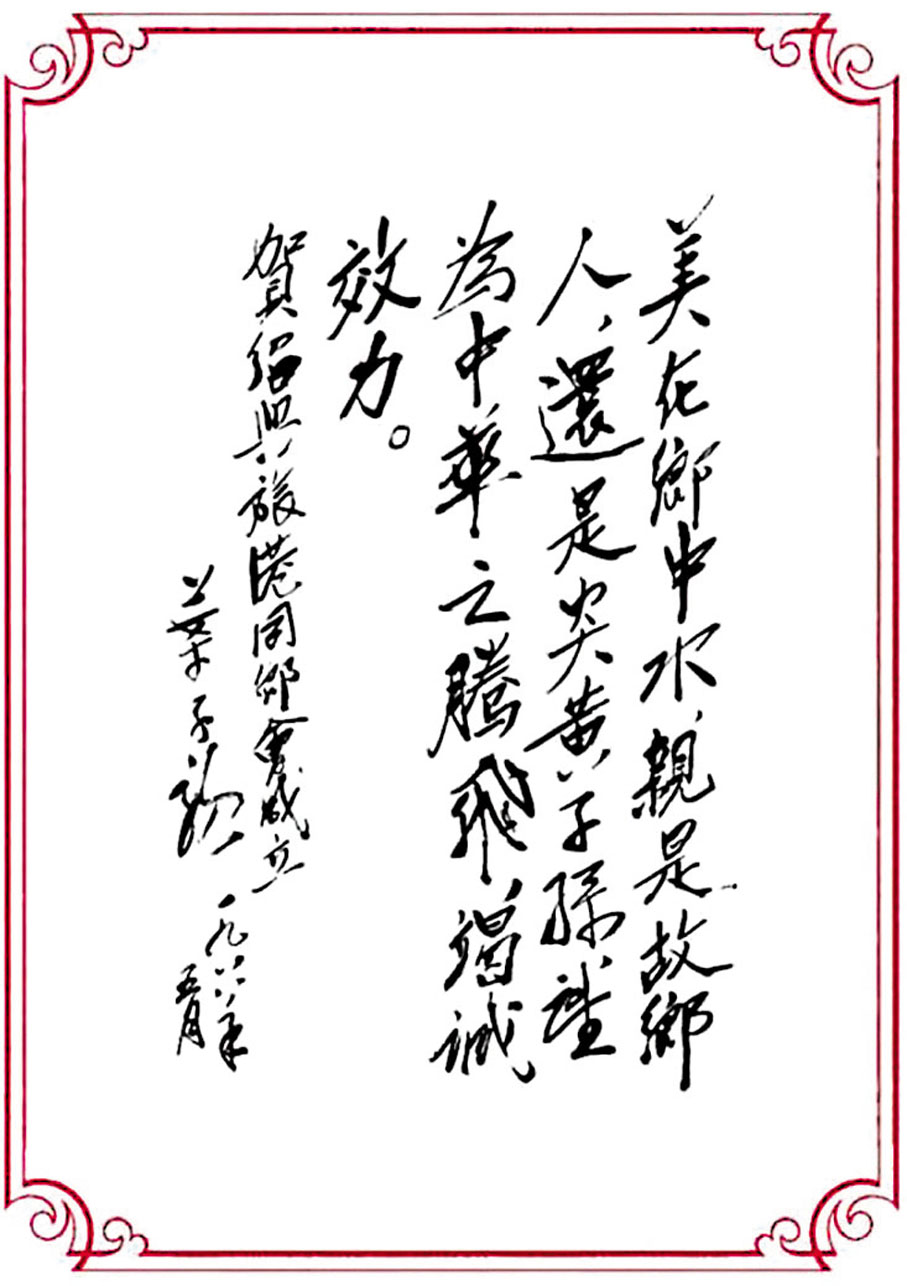 美在鄉中水、親是故鄉
人、還是炎黃子孫、望
為中華之騰飛、竭誠
效力。
賀紹興旅港同鄉會成立
葉子
一九八六年
五月